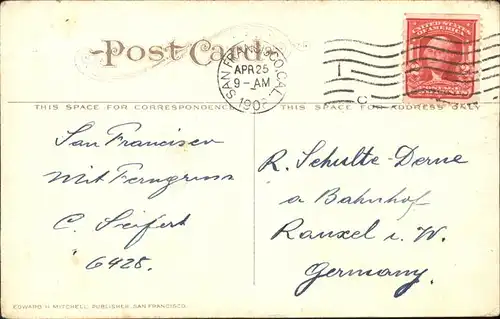 Post Card
SAN FRANCISCO, CAL.
APR 25
9-AM
190
1
C
UNITED STATES
OF AMERICA
2 2
THIS SPACE FOR CORRESPONDENCE
THIS SPACE FOR ADDRESS ONLY
San Francisco
Mit Ferngruss
C. Seifert
6428.
R. Schulte-Derne
a Bahnhof
Rauxel i. W.
Germany.
EDWARD H. MITCHELL, PUBLISHER, SAN FRANCISCO.